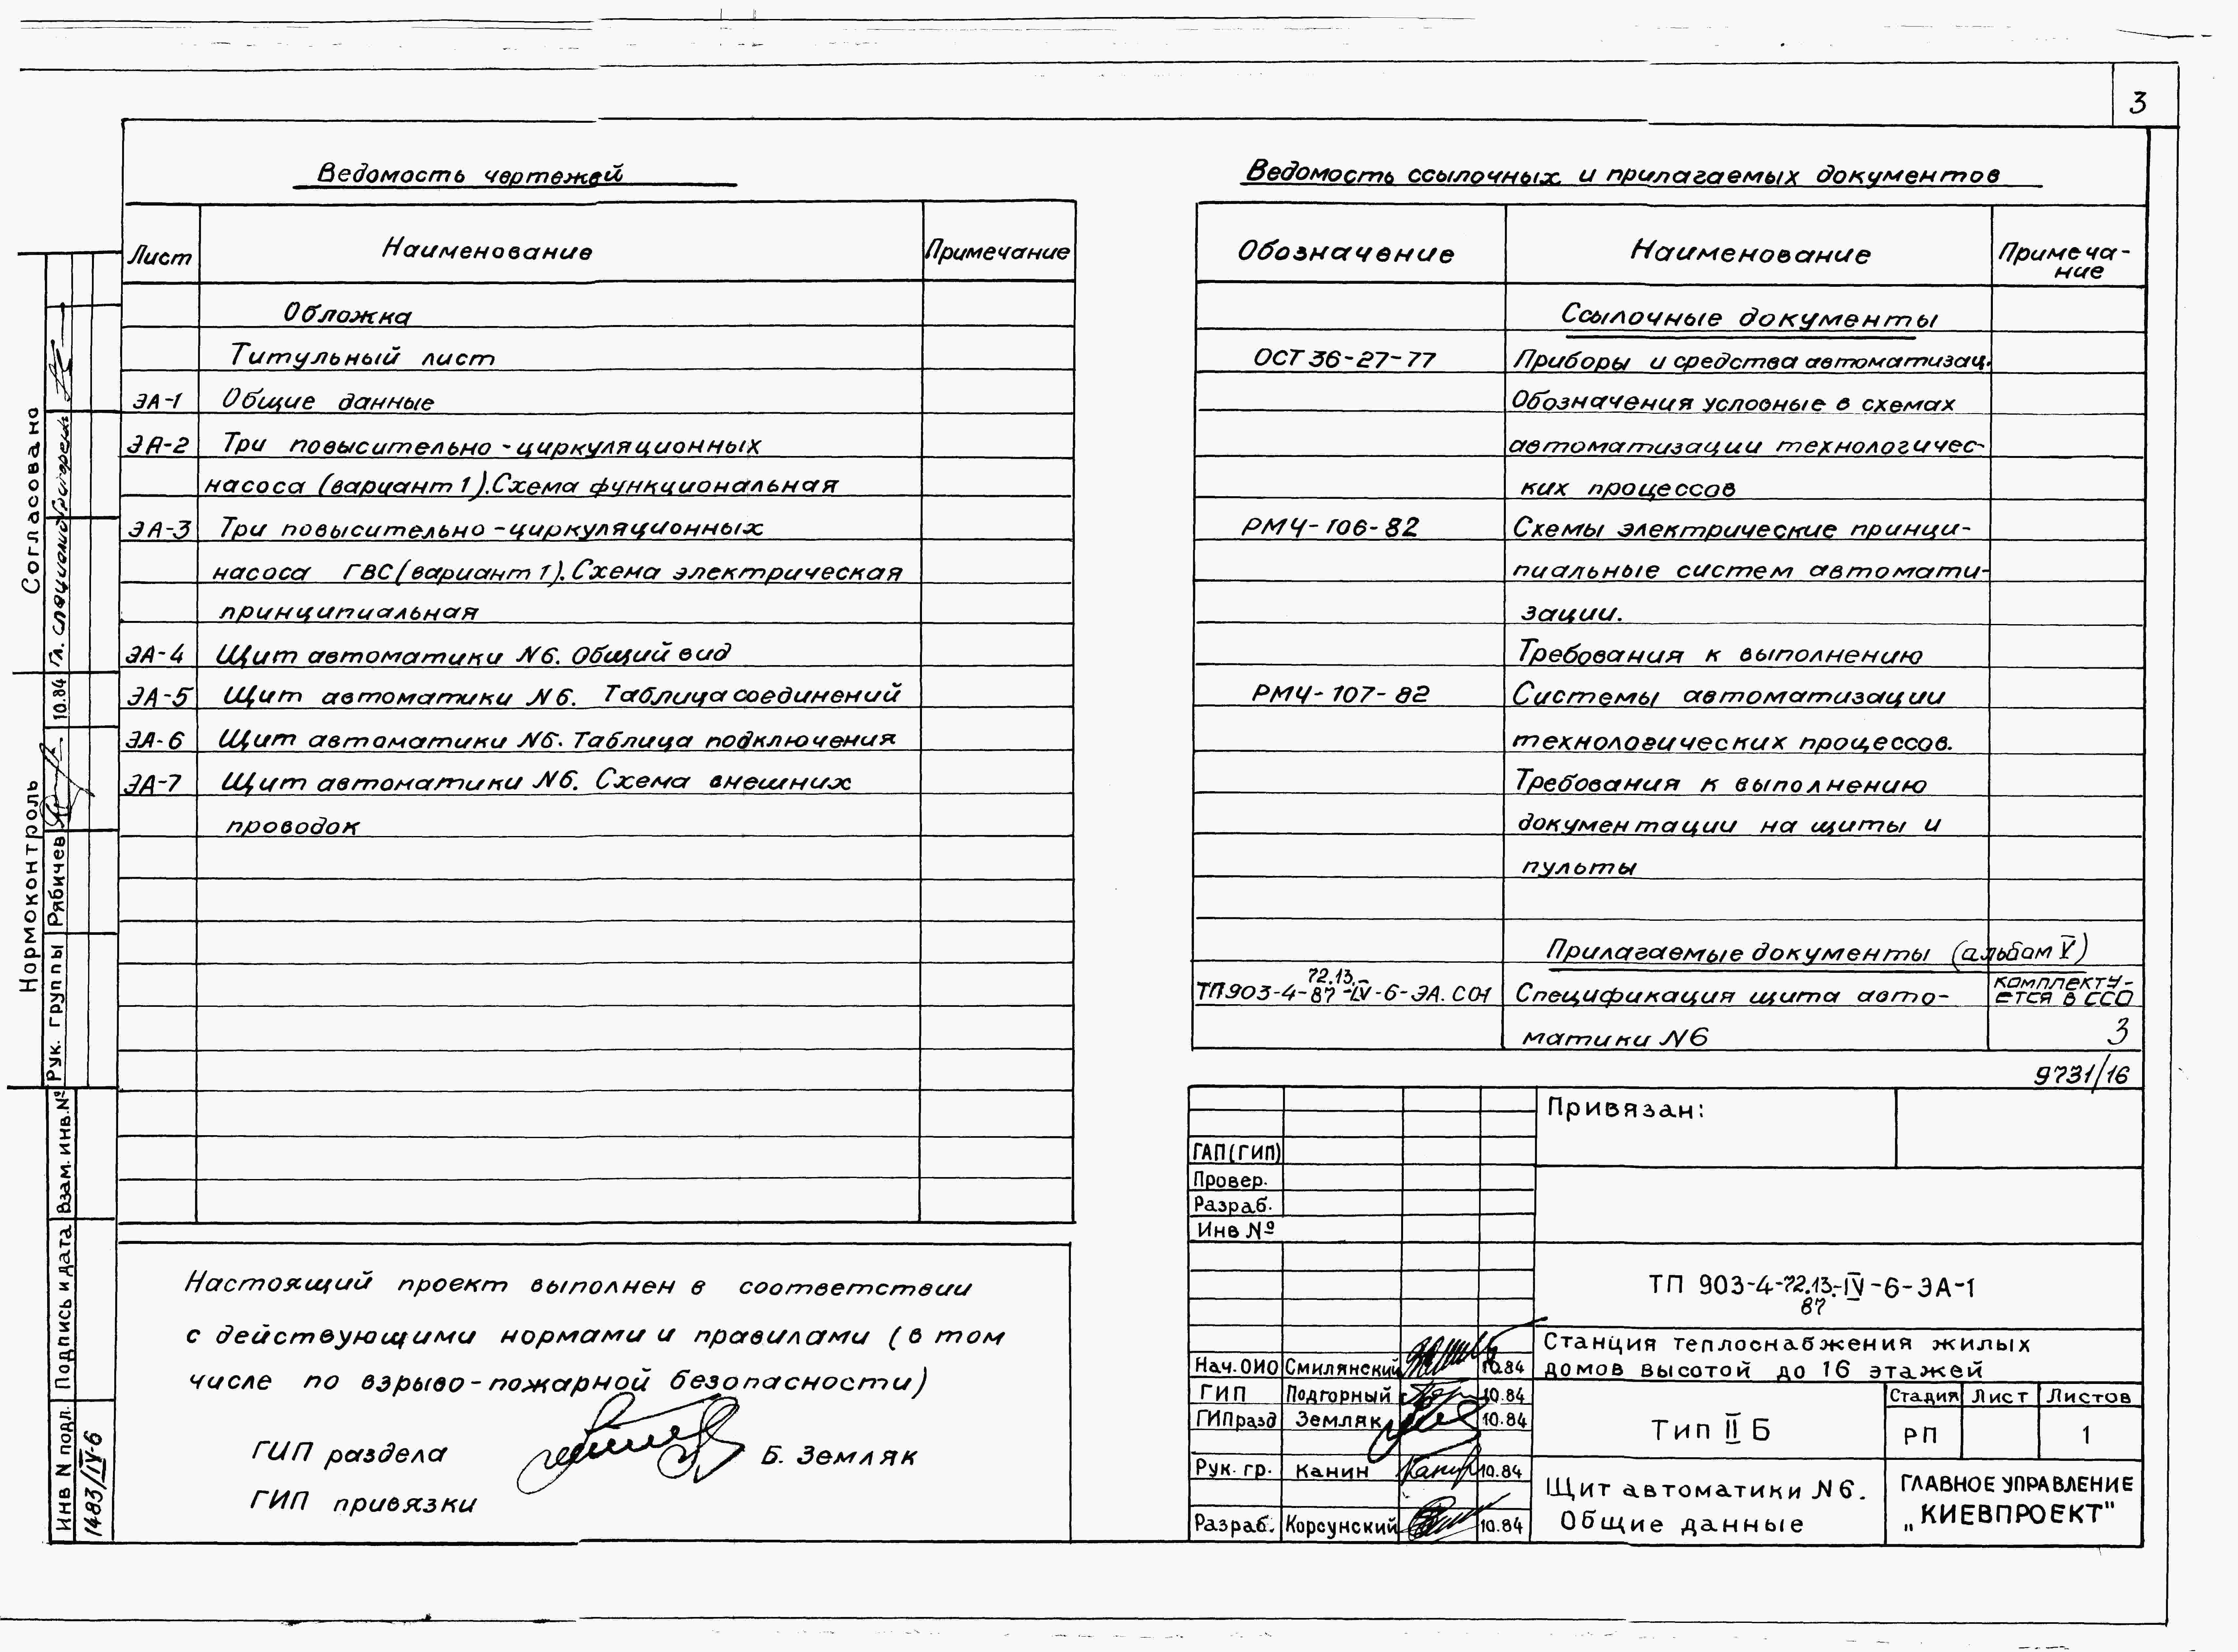 3
Ведомость чертежей
Лист Наименование Примечание
Обложка
Титульный лист
ЭА-1 Общие данные
ЭА-2 Три повысительно-циркуляционных
насоса (вариант 1). Схема функциональная
ЭА-3 Три повысительно-циркуляционных
насоса ГВС (вариант 1). Схема электрическая
принципиальная
ЭА-4 Щит автоматики N6. Общий вид
ЭА-5 Щит автоматики N6. Таблица соединений
ЭА-6 Щит автоматики N6. Таблица подключения
ЭА-7 Щит автоматики N6. Схема внешних
проводок
Настоящий проект выполнен в соответствии
с действующими нормами и правилами (в том
числе по взрыво-пожарной безопасности)
ГИП раздела Б. Земляк
ГИП привязки
Ведомость ссылочных и прилагаемых документов
Обозначение Наименование Примеча-
ние
Ссылочные документы
ОСТ 36-27-77 Приборы и средства автоматизац.
Обозначения условные в схемах
автоматизации технологичес-
ких процессов
РМ4-106-82 Схемы электрические принци-
пиальные систем автомати-
зации.
Требования к выполнению
РМ4-107-82 Системы автоматизации
технологических процессов.
Требования к выполнению
документации на щиты и
пульты
Прилагаемые документы (альбом V)
72.13.
ТП 903-4-87-IV-6-ЭА.СО1 Спецификация щита авто- комплекту-
ется в ССО
матики N6 3
9731/16
Привязан:
ГАП(ГИП)
Провер.
Разраб.
Инв №
ТП 903-4-72.13.-IV-6-ЭА-1
87
Станция теплоснабжения жилых
домов высотой до 16 этажей
Нач. ОИО Смилянский 10.84
ГИП Подгорный 10.84
ГИП разд Земляк 10.84
Рук. гр. Канин 10.84
Разраб. Корсунский 10.84
Тип II Б
Стадия Лист Листов
РП 1
Щит автоматики N6.
Общие данные
ГЛАВНОЕ УПРАВЛЕНИЕ
„КИЕВПРОЕКТ"
Согласовано
Гл. специалист
Нормоконтроль
Рук. группы Рябичев 10.84
Взам. инв. №
Подпись и дата
Инв N подл.
1483/IV-6